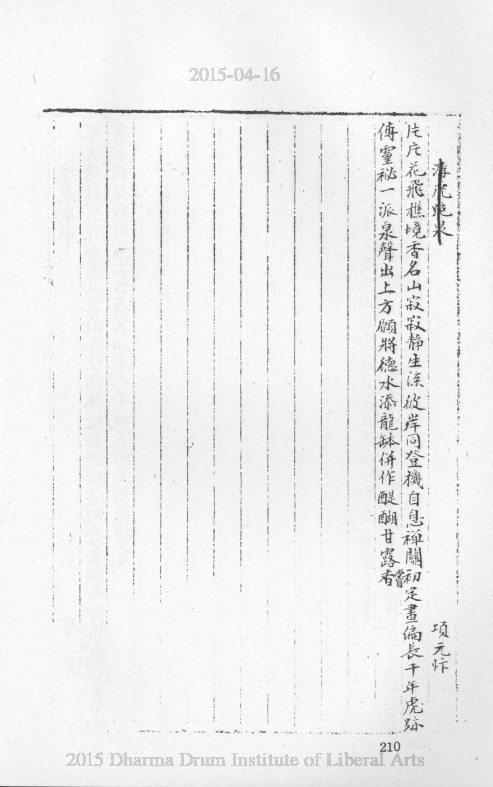 2015-04-16
虎跑泉
項元忭
片片花飛樵境香名山寂寂靜生涼彼岸同登機自息禪關初定晝偏長千年虎跡
傳靈祕一派泉聲出上方願將德水添龍鉢併作醍醐甘露嘗
210
2015 Dharma Drum Institute of Liberal Arts